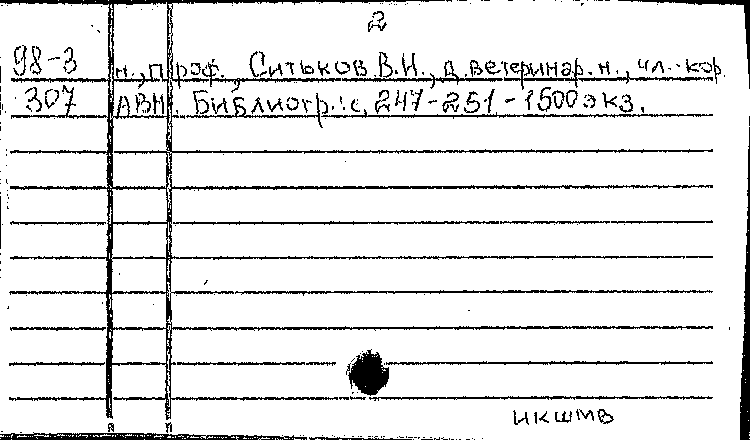 2
98-3 н., проф., Ситьков В.И., д. ветеринар. н., чл.-кор.
307 АВН. Библиогр.: с. 247-251 - 1500 экз.
НКШМВ